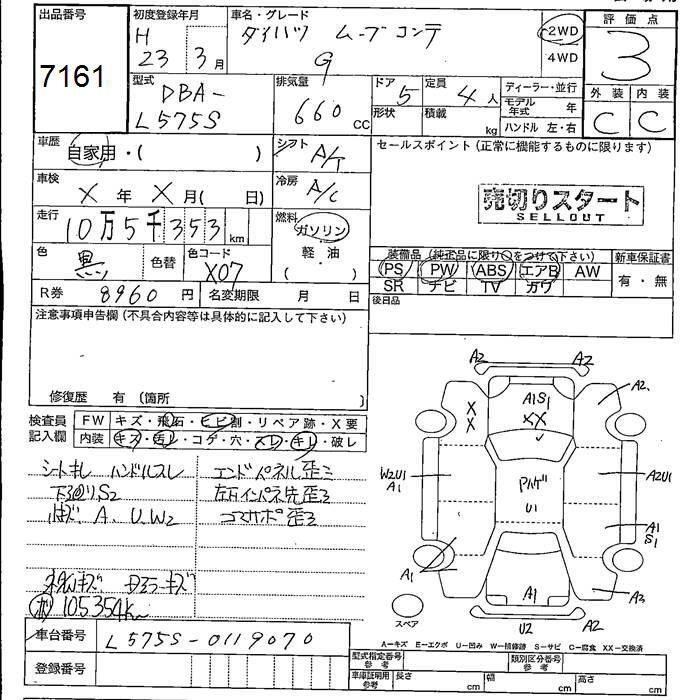 出品番号
7161
初度登録年月
H
23年 3月
車名・グレード
ダイハツ ムーブコンテ
G
2WD
4WD
評価点
3
外装 内装
C C
型式
DBA-
L575S
排気量
660 CC
ドア 5
形状
定員 4人
積載 kg
ディーラー・並行
モデル年式 年
ハンドル 左・右
車歴
自家用・( )
シフト A/T
セールスポイント (正常に機能するものに限ります)
売切りスタート
SELLOUT
車検
X 年 X 月( 日)
冷房 A/C
走行
10万5千353 km
燃料
ガソリン
軽・油
( )
色 黒
色替
色コード
X07
装備品 (純正品に限り○をつけて下さい)
新車保証書
PS PW ABS エアB AW
SR ナビ TV カワ
有・無
R券 8960 円
名変期限 月 日
後日品
注意事項申告欄 (不具合内容等は具体的に記入して下さい)
修復歴 有 (箇所 )
検査員
記入欄
FW キズ・飛石・ヒビ割・リペア跡・X要
内装 キズ・汚レ・コゲ・穴・スレ・キレ・破レ
シートキレ ハンドルスレ
下回りS2
A、U、W2
エンドパネル歪ミ
コアサポ歪ミ
ミラーキズ
105354K
A2 A2
A1S1
XX
A2
X
X
W2U1
A1
U1
A2U1
A1
S1
A1
A1
A3
U2 A2
スペア
A-キズ E-エクボ U-凹み W-補修跡 S-サビ C-腐食 XX-交換済
車台番号
L575S-0119070
登録番号
型式指定番号
参考
類別区分番号
参考
車庫証明用
参考
長さ cm
幅 cm
高さ cm